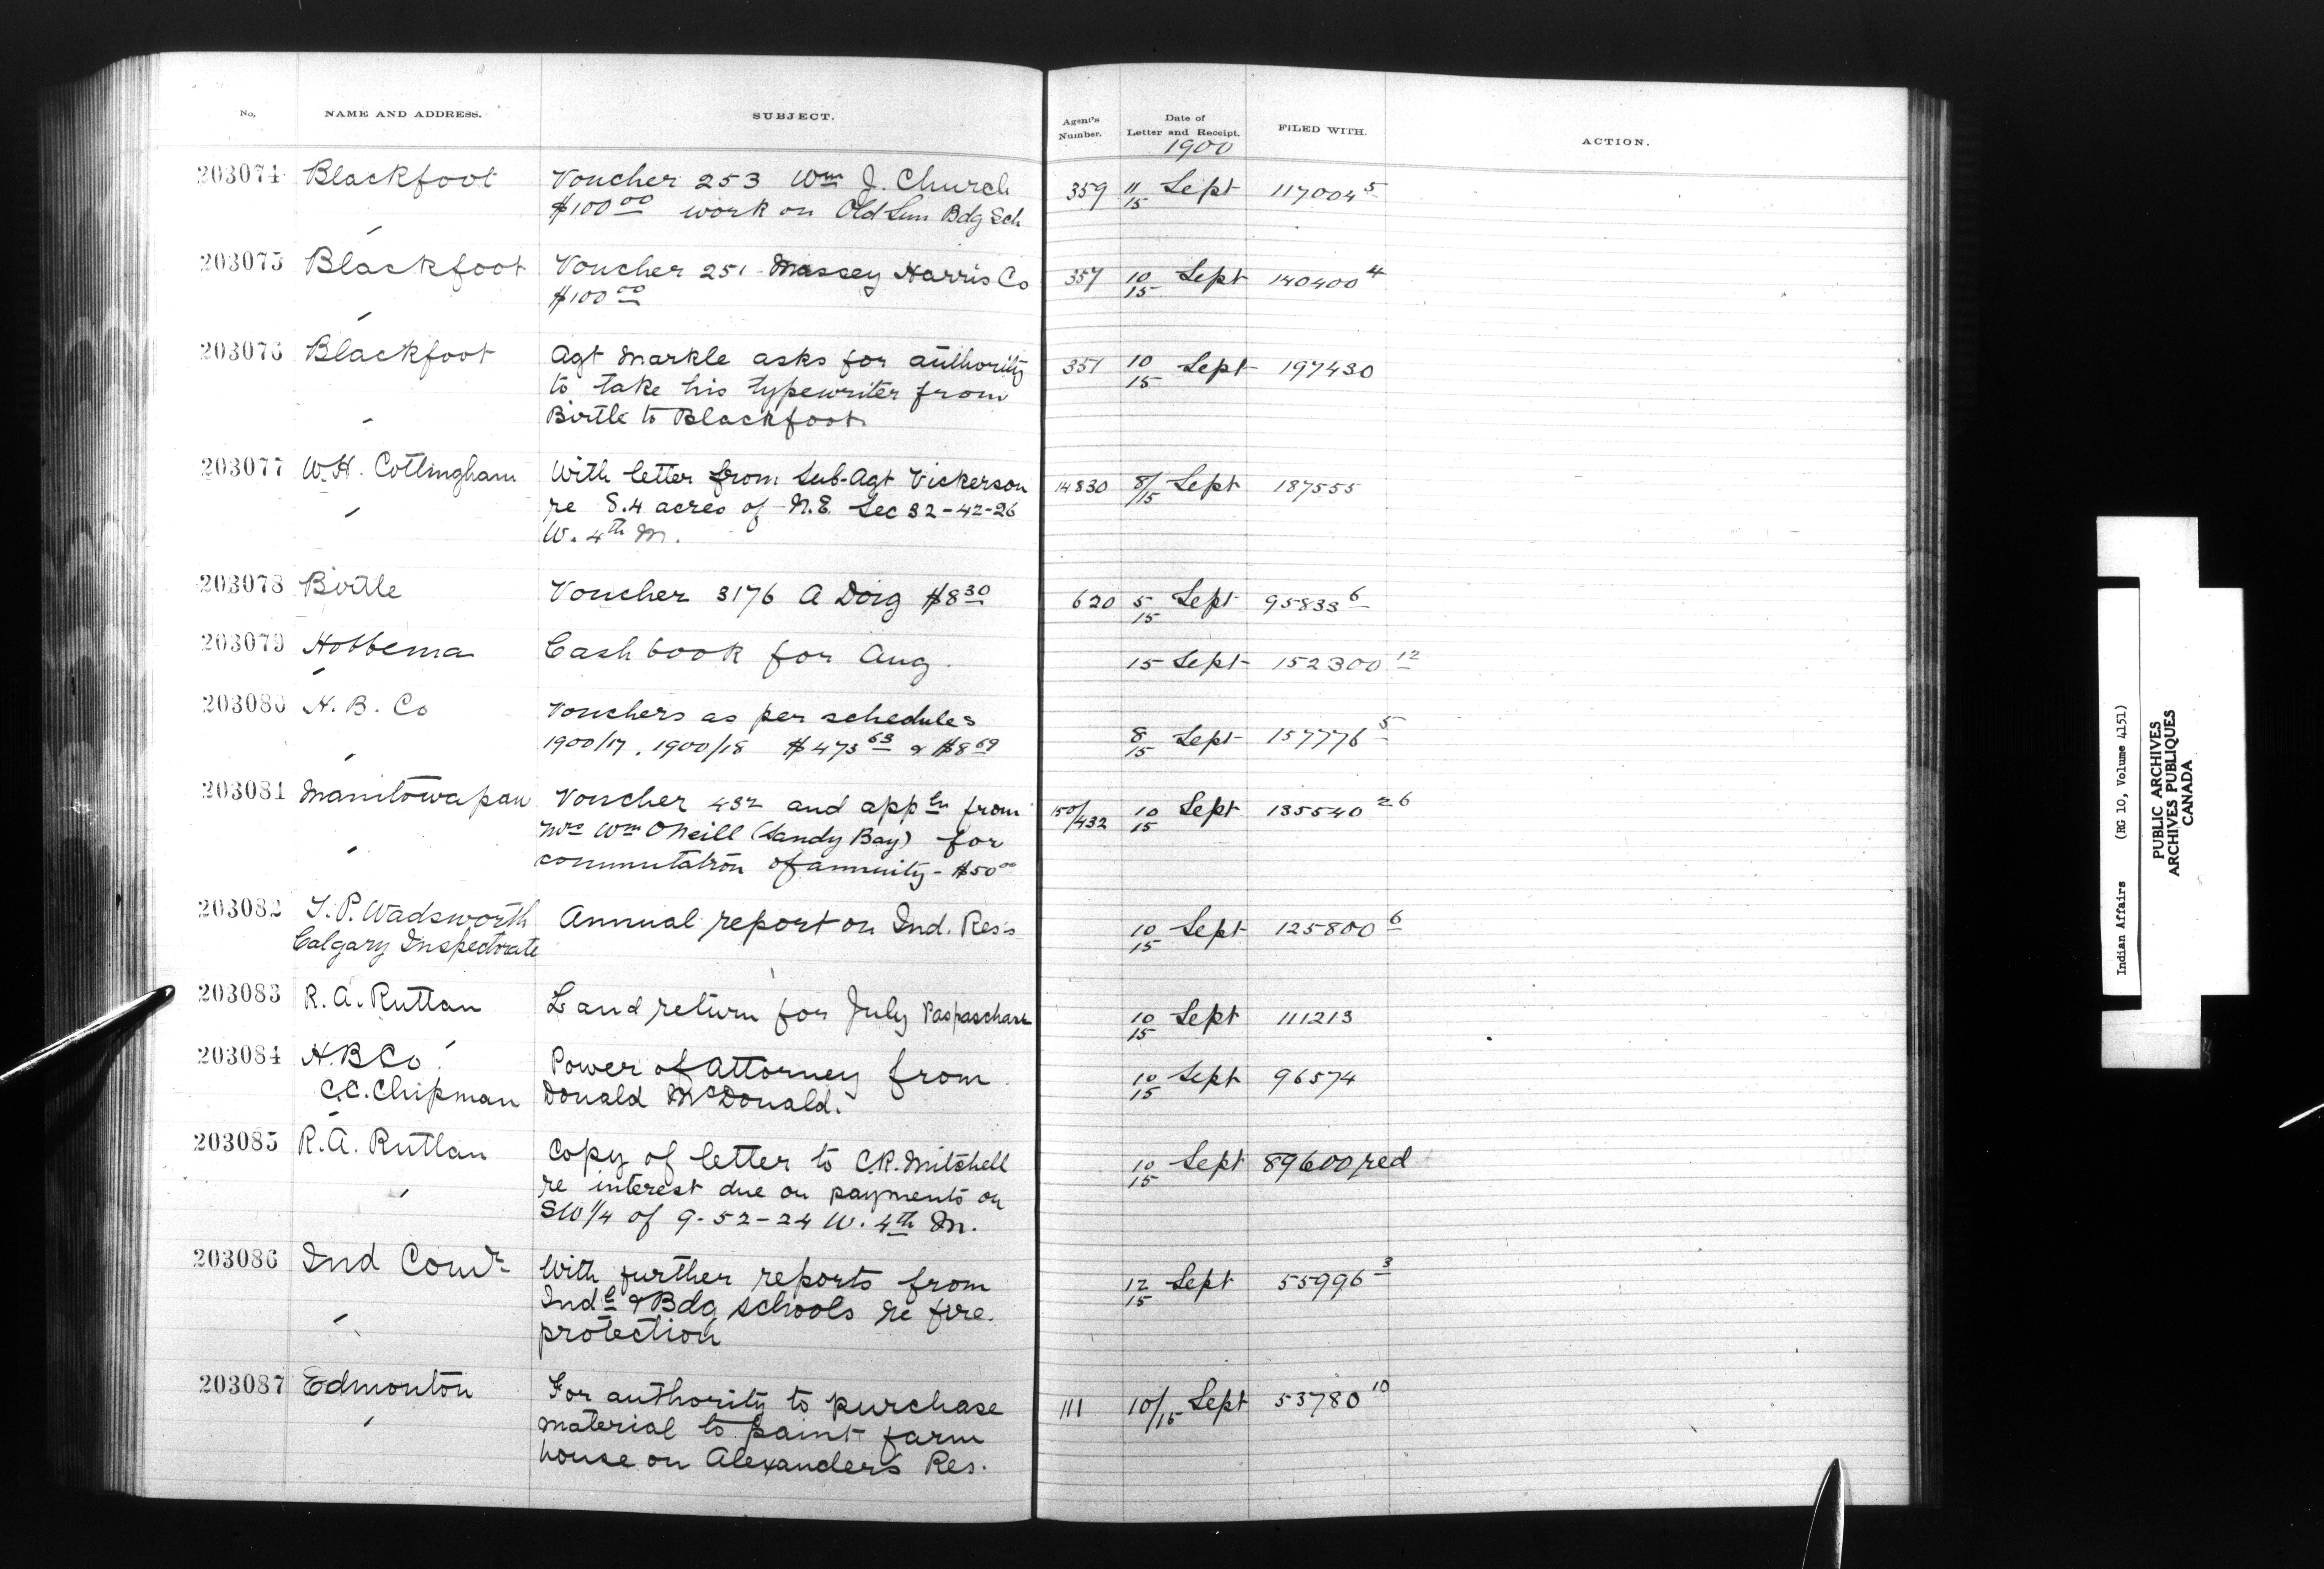 No. NAME AND ADDRESS. SUBJECT. Agent's Number. Date of Letter and Receipt. FILED WITH. ACTION.
1900
203074 Blackfoot Voucher 253 Wm J. Church 359 11/15 Sept 117004 5
$100 00 work on Old Sun Bdg Sch
203075 Blackfoot Voucher 251 - Massey Harris Co 357 10/15 Sept 140400 4
$100 00
203076 Blackfoot Agt Markle asks for authority 351 10/15 Sept 197430
to take his typewriter from
Birtle to Blackfoot
203077 W.H. Cottingham With letter from Sub-Agt Vickerson 14830 8/15 Sept 187555
re 8.4 acres of N.E. Sec 32-42-26
W. 4th M.
203078 Birtle Voucher 3176 A Doig $8 30 620 5/15 Sept 95833 6
203079 Hobbema Cash book for Aug. 15 Sept 152300 12
203080 H. B. Co Vouchers as per schedules
1900/17, 1900/18 $473 63 & $8 69 8/15 Sept 157776 5
203081 Manitowapaw Voucher 432 and appln from 150/432 10/15 Sept 135540 26
Mrs Wm O'Neill (Sandy Bay) for
commutation of annuity - $50 00
203082 T. P. Wadsworth Annual report on Ind. Res's 10/15 Sept 125800 6
Calgary Inspectorate
203083 R. A. Ruttan Land return for July Paspaschase 10/15 Sept 111213
203084 H.B Co Power of Attorney from 10/15 Sept 96574
C.C. Chipman Donald McDonald.
203085 R. A. Ruttan Copy of letter to C.R. Mitchell 10/15 Sept 89600 red
re interest due on payments on
SW 1/4 of 9-52-24 W. 4th M.
203086 Ind Comr With further reports from 12/15 Sept 55996 3
Indl & Bdg schools re fire
protection
203087 Edmonton For authority to purchase 111 10/15 Sept 53780 10
material to paint farm
house on Alexander's Res.
Indian Affairs (RG 10, Volume 4151)
PUBLIC ARCHIVES
ARCHIVES PUBLIQUES
CANADA